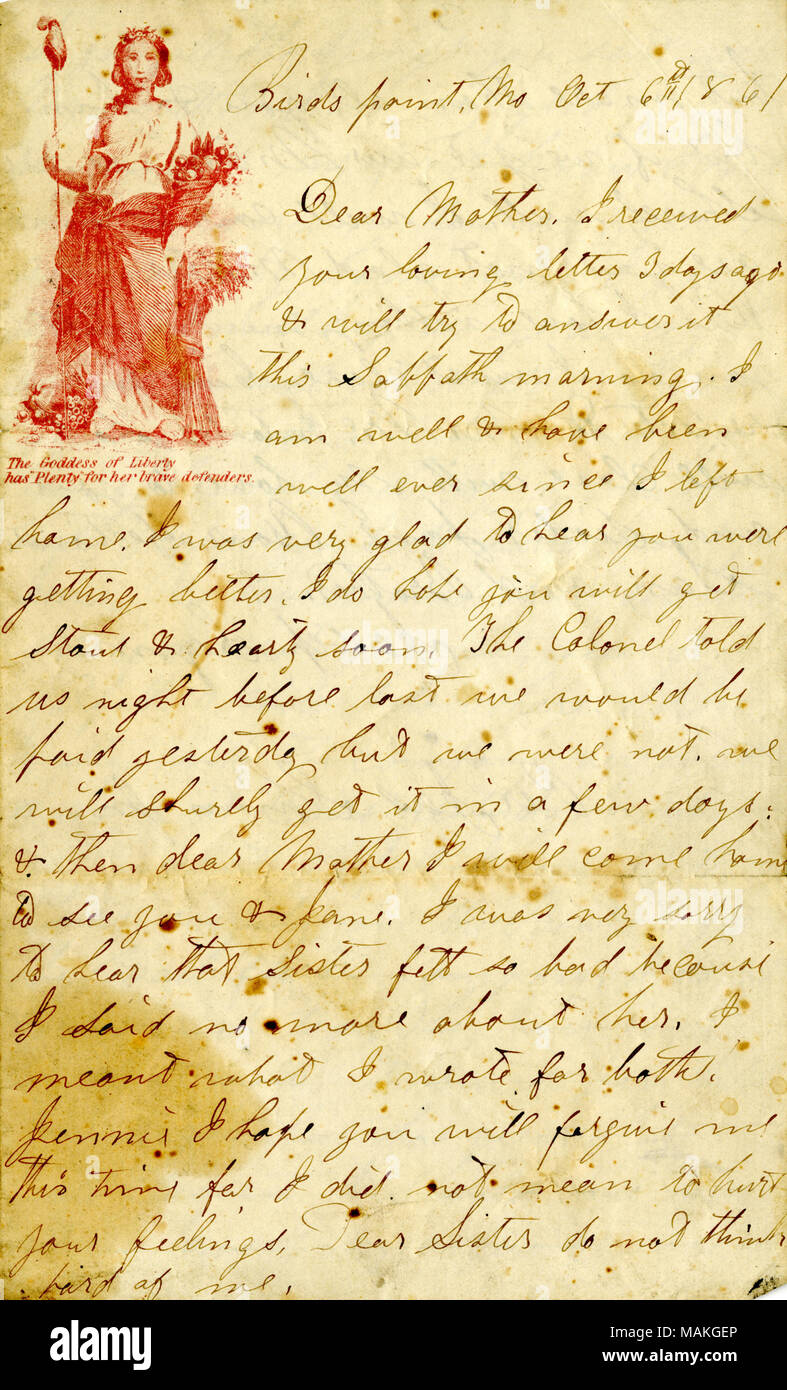 Birds point, Mo Oct 6th 1861
Dear Mother. I received
your loving letter 3 days ago
& will try to answer it
this Sabbath morning. I
am well & have been
The Goddess of Liberty
has "Plenty" for her brave defenders.
well ever since I left
home. I was very glad to hear you were
getting better. I do hope you will get
stout & hearty soon. The Colonel told
us night before last we would be
paid yesterday but we were not. we
will shurely get it in a few days.
& then dear Mother I will come home
to see you & Jane. I was very sorry
to hear that Sister felt so bad because
I said no more about her. I
meant what I wrote for both.
Jennie I hope you will forgive me
this time for I did not mean to hurt
your feelings. Dear Sister do not think
hard of me.
alamy
alamy
alamy
a
a
a
alamy
Image ID: MAKGEP
www.alamy.com